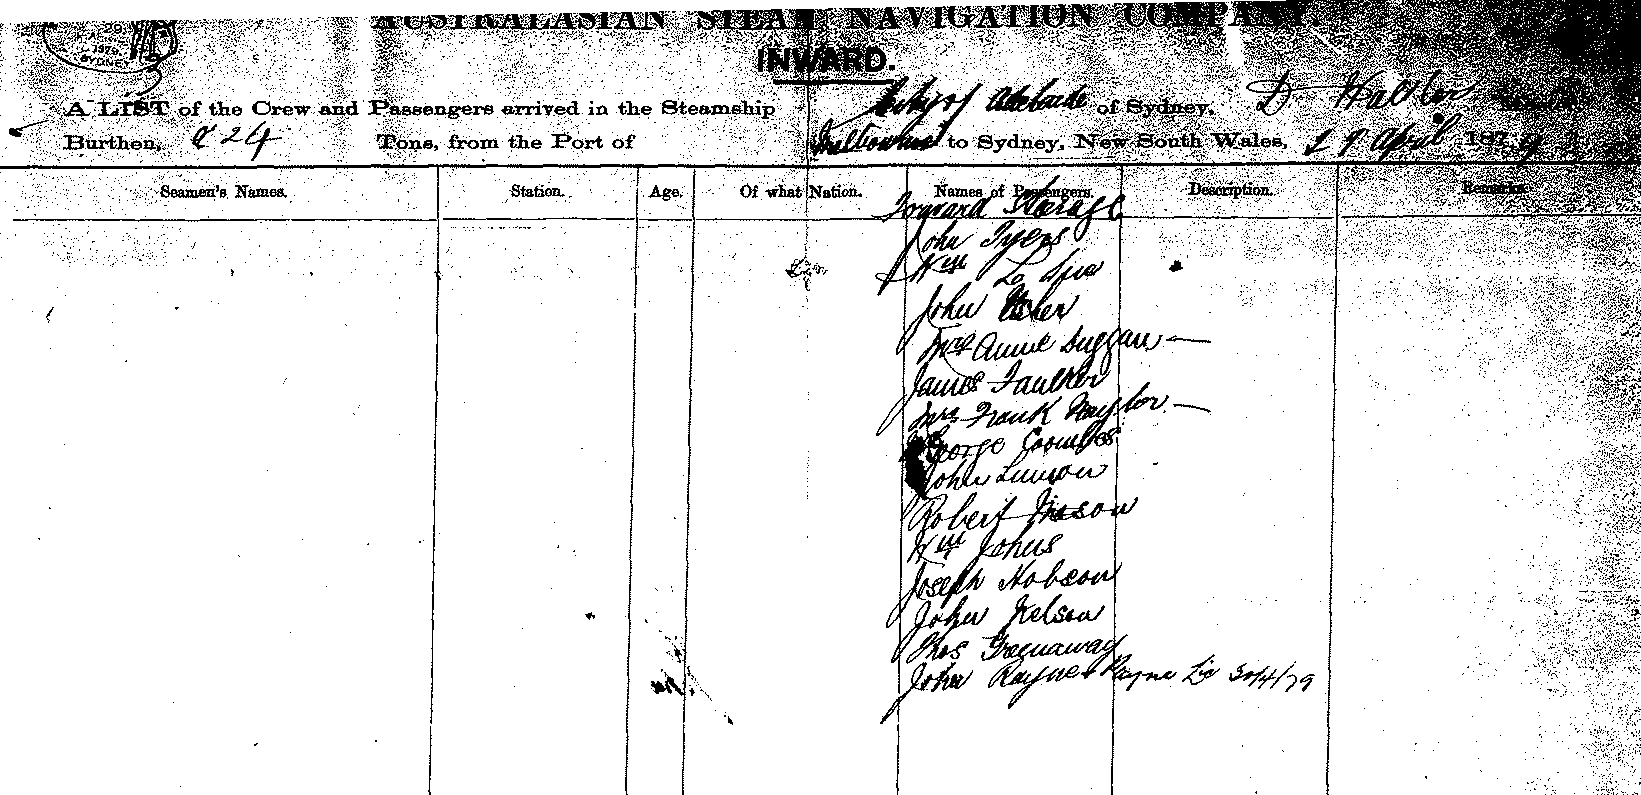 AUSTRALASIAN STEAM NAVIGATION COMPANY.
1879
SYDNEY
INWARD.
A LIST of the Crew and Passengers arrived in the Steamship City of Adelaide of Sydney, D Walker
Burthen, 824 Tons, from the Port of Melbourne to Sydney, New South Wales, 29 April 1879
Seamen's Names. Station. Age. Of what Nation. Names of Passengers. Description. Remarks.
Forward Steerage
John Tyers
Wm La
John Usher
Mrs Annie Duggan —
James Faulker
Mrs Frank Naylor —
George Coombes
John
Robert
Wm Johns
Joseph Hobson
John Nelson
Thos Greenaway
John Rayner Payne 30/4/79